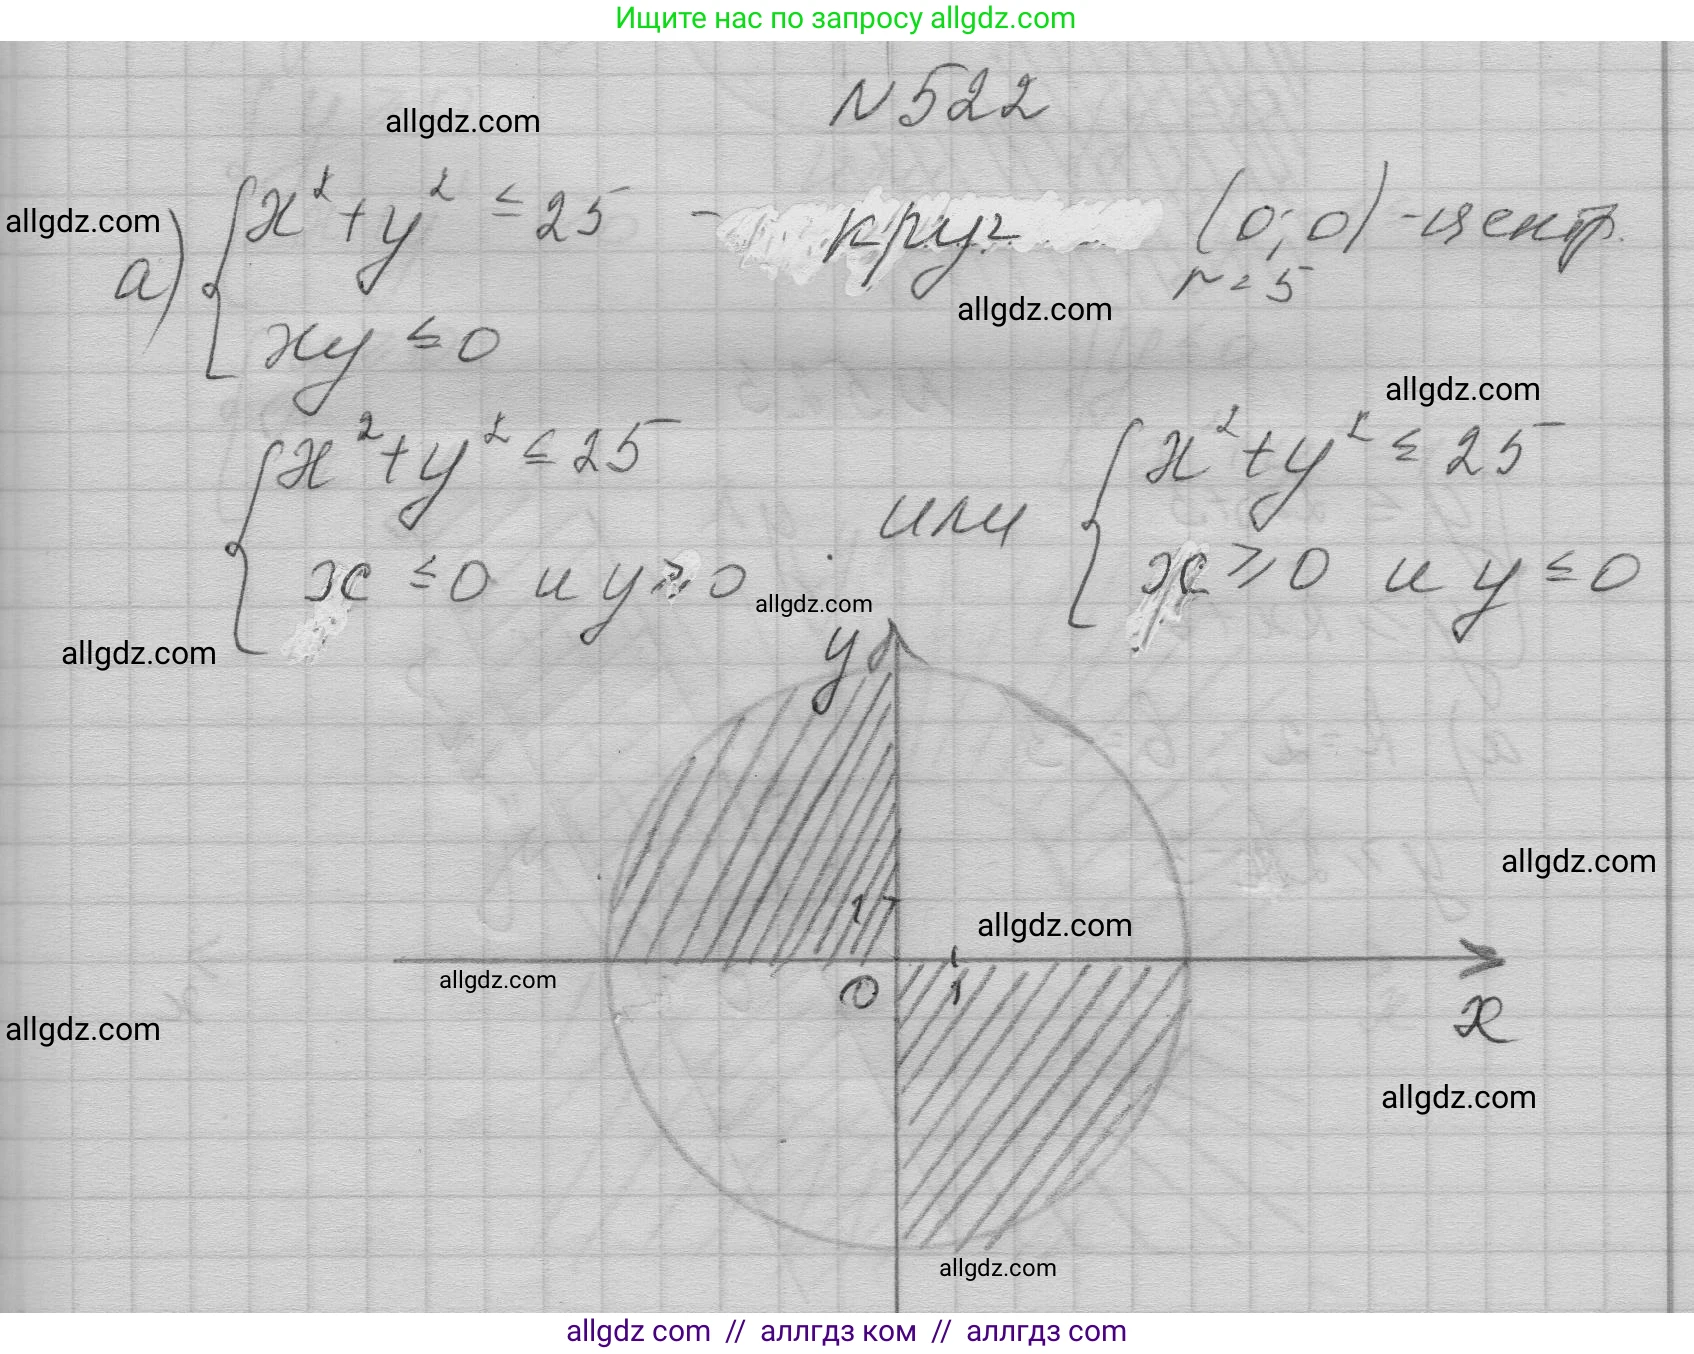 Ищите нас по запросу allgdz.com
N 522
allgdz.com
allgdz.com
а) { x² + y² ≤ 25 - круг (0; 0) - центр.
r = 5
allgdz.com
xy ≤ 0
allgdz.com
{ x² + y² ≤ 25 или { x² + y² ≤ 25
x ≤ 0 и y ≥ 0 x ≥ 0 и y ≤ 0
allgdz.com
allgdz.com
y
allgdz.com
1
allgdz.com
allgdz.com
0 1
x
allgdz.com
allgdz.com
allgdz.com
allgdz com // аллгдз ком // аллгдз com